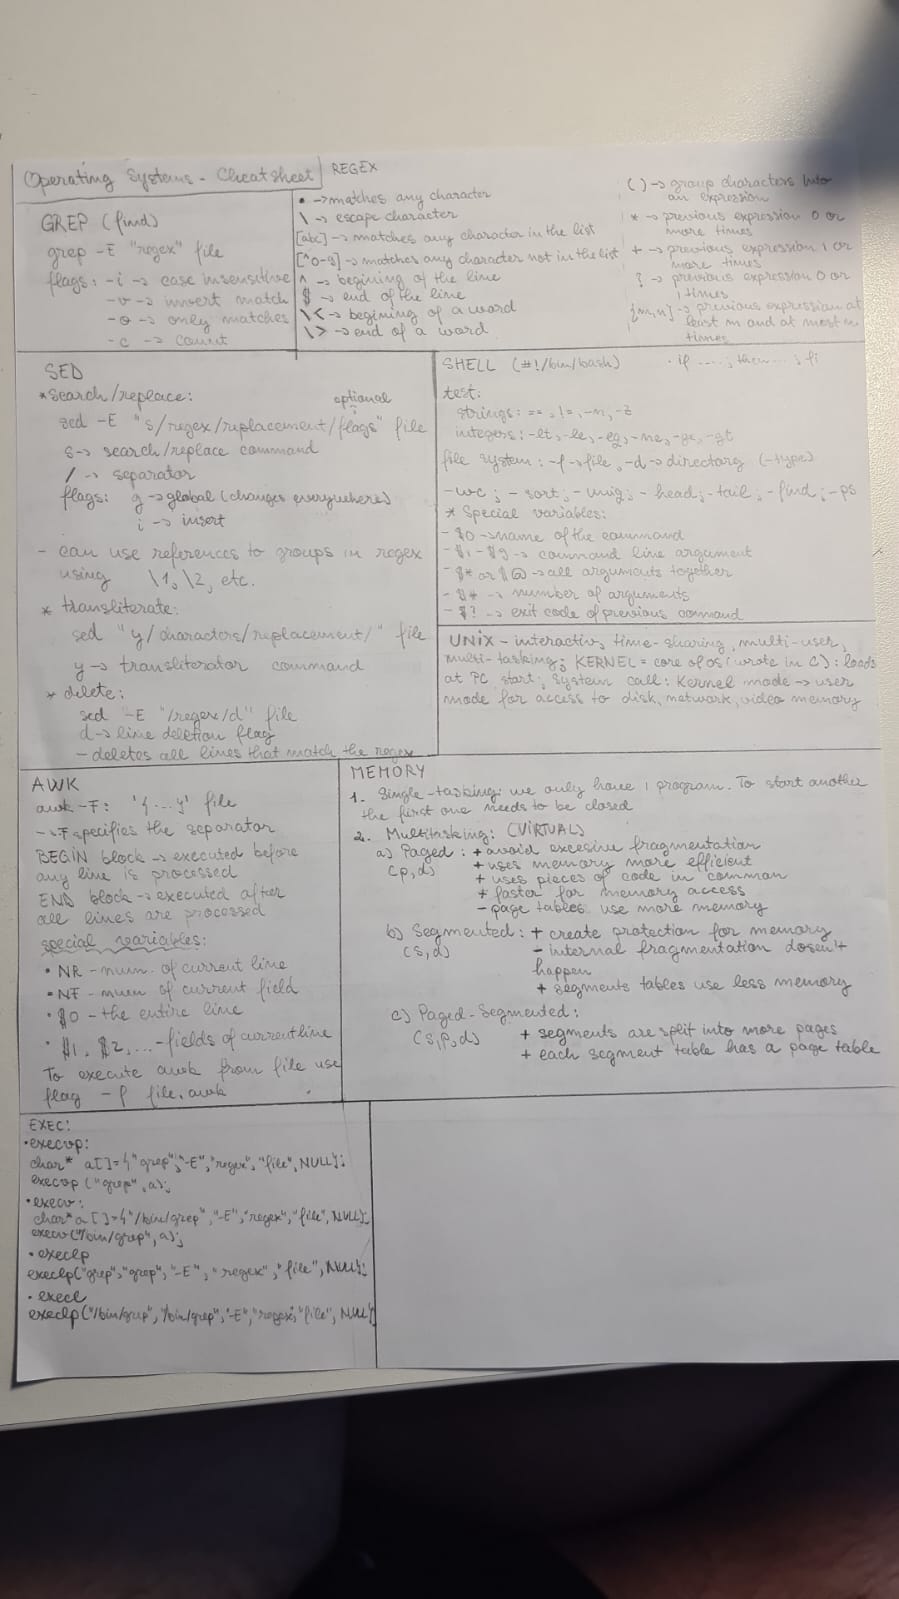 Operating Systems - Cheatsheet
GREP (find)
grep -E "regex" file
flags: -i -> case insensitive
-v -> invert match
-o -> only matches
-c -> count
REGEX
• -> matches any character
\ -> escape character
[abc] -> matches any character in the list
[^0-9] -> matches any character not in the list
^ -> begining of the line
$ -> end of the line
\< -> begining of a word
\> -> end of a word
() -> group characters into
an expression
* -> previous expression 0 or
more times
+ -> previous expression 1 or
more times
? -> previous expression 0 or
1 times
{m,n} -> previous expression at
least m and at most n
times
SED
* Search/replace:
optional
sed -E "s/regex/replacement/flags" file
s -> search/replace command
/ -> separator
flags: g -> global (changes everywhere)
i -> insert
- can use references to groups in regex
using \1, \2, etc.
* transliterate:
sed "y/characters/replacement/" file
y -> transliterator command
* delete:
sed -E "/regex/d" file
d -> line deletion flag
- deletes all lines that match the regex
SHELL (#!/bin/bash) • if ....; then...; fi
test:
strings: ==, !=, -n, -z
integers: -lt, -le, -eq, -ne, -ge, -gt
file system: -f -> file, -d -> directory (-type)
-wc; -sort; -uniq; -head; -tail; -find; -ps
* Special variables:
- $0 -> name of the command
- $1-$9 -> command line argument
- $* or $@ -> all arguments together
- $# -> number of arguments
- $? -> exit code of previous command
UNIX - interactiv, time-sharing, multi-user,
multi-tasking; KERNEL = core of OS (wrote in C): loads
at PC start; System call: Kernel mode -> user
mode for access to disk, network, video memory
AWK
awk -F: '{...}' file
-F specifies the separator
BEGIN block -> executed before
any line is processed
END block -> executed after
all lines are processed
special variables:
• NR - num. of current line
• NF - num of current field
• $0 - the entire line
• $1, $2, ... - fields of current line
To execute awk from file use
flag -f file.awk
MEMORY
1. Single-tasking: we only have 1 program. To start another
the first one needs to be closed
2. Multitasking: (VIRTUAL)
a) Paged: + avoid excesive fragmentation
(p,d) + uses memory more efficient
+ uses pieces of code in common
+ faster for memory access
- page tables use more memory
b) Segmented: + create protection for memory
(s,d) - internal fragmentation dosen't
happen
+ segments tables use less memory
c) Paged-Segmented:
(s,p,d) + segments are split into more pages
+ each segment table has a page table
EXEC:
• execvp:
char* a[]={"grep","-E","regex","file",NULL};
execvp ("grep",a);
• execv:
char* a[]={"/bin/grep","-E","regex","file",NULL};
execv("/bin/grep",a);
• execlp
execlp("grep","grep","-E","regex","file",NULL);
• execl
execlp("/bin/grep","/bin/grep","-E","regex","file",NULL)